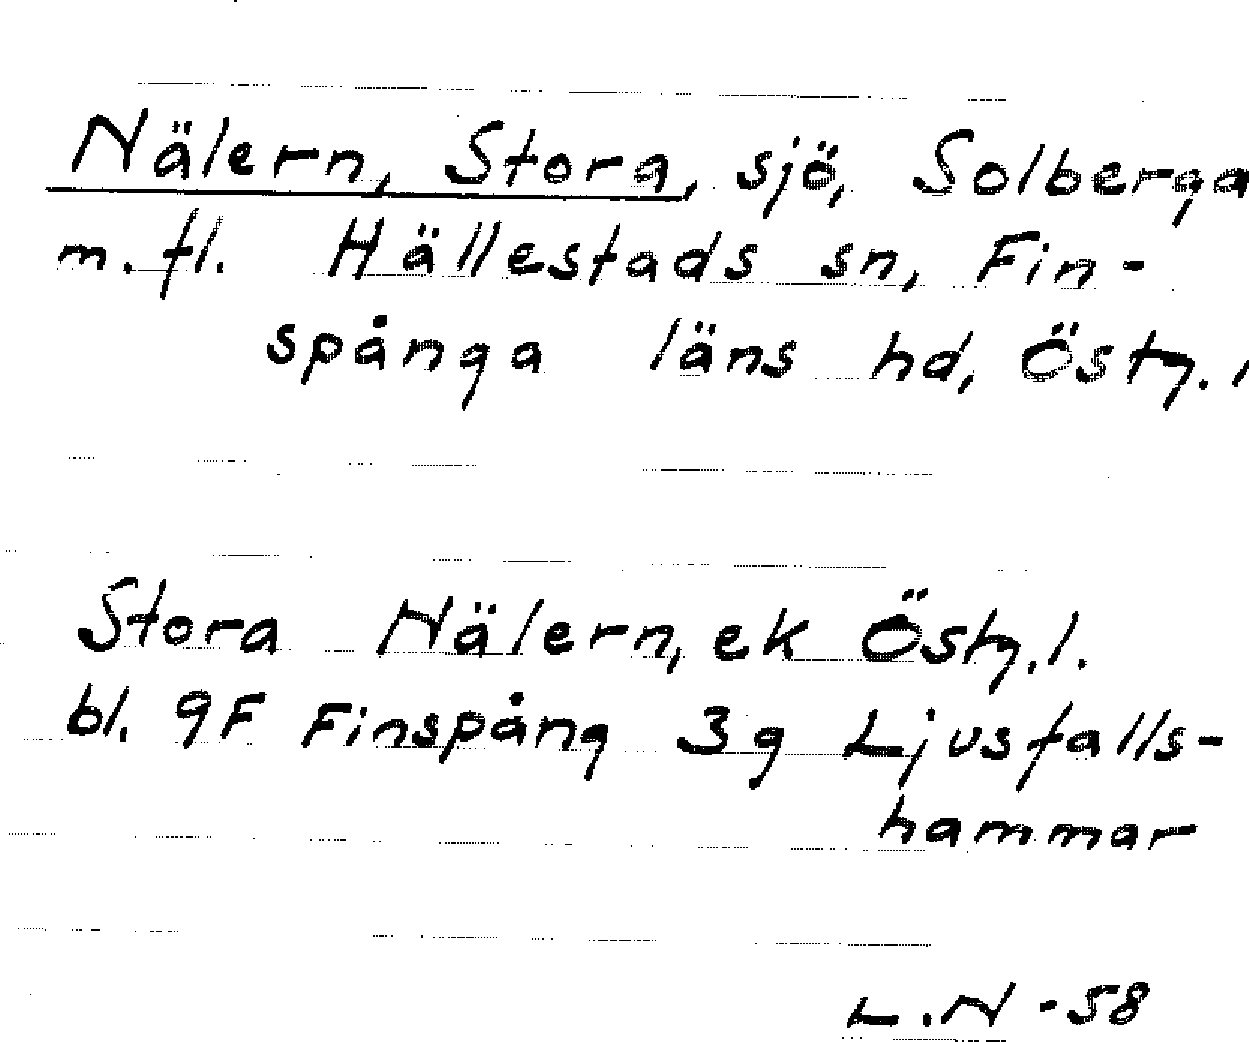 Nälern, Stora, sjö, Solberga
m.fl. Hällestads sn, Fin-
spånga läns hd, Östg.l
Stora Nälern, ek Östg.l.
bl. 9F Finspång 3g Ljusfalls-
hammar
L.N -58